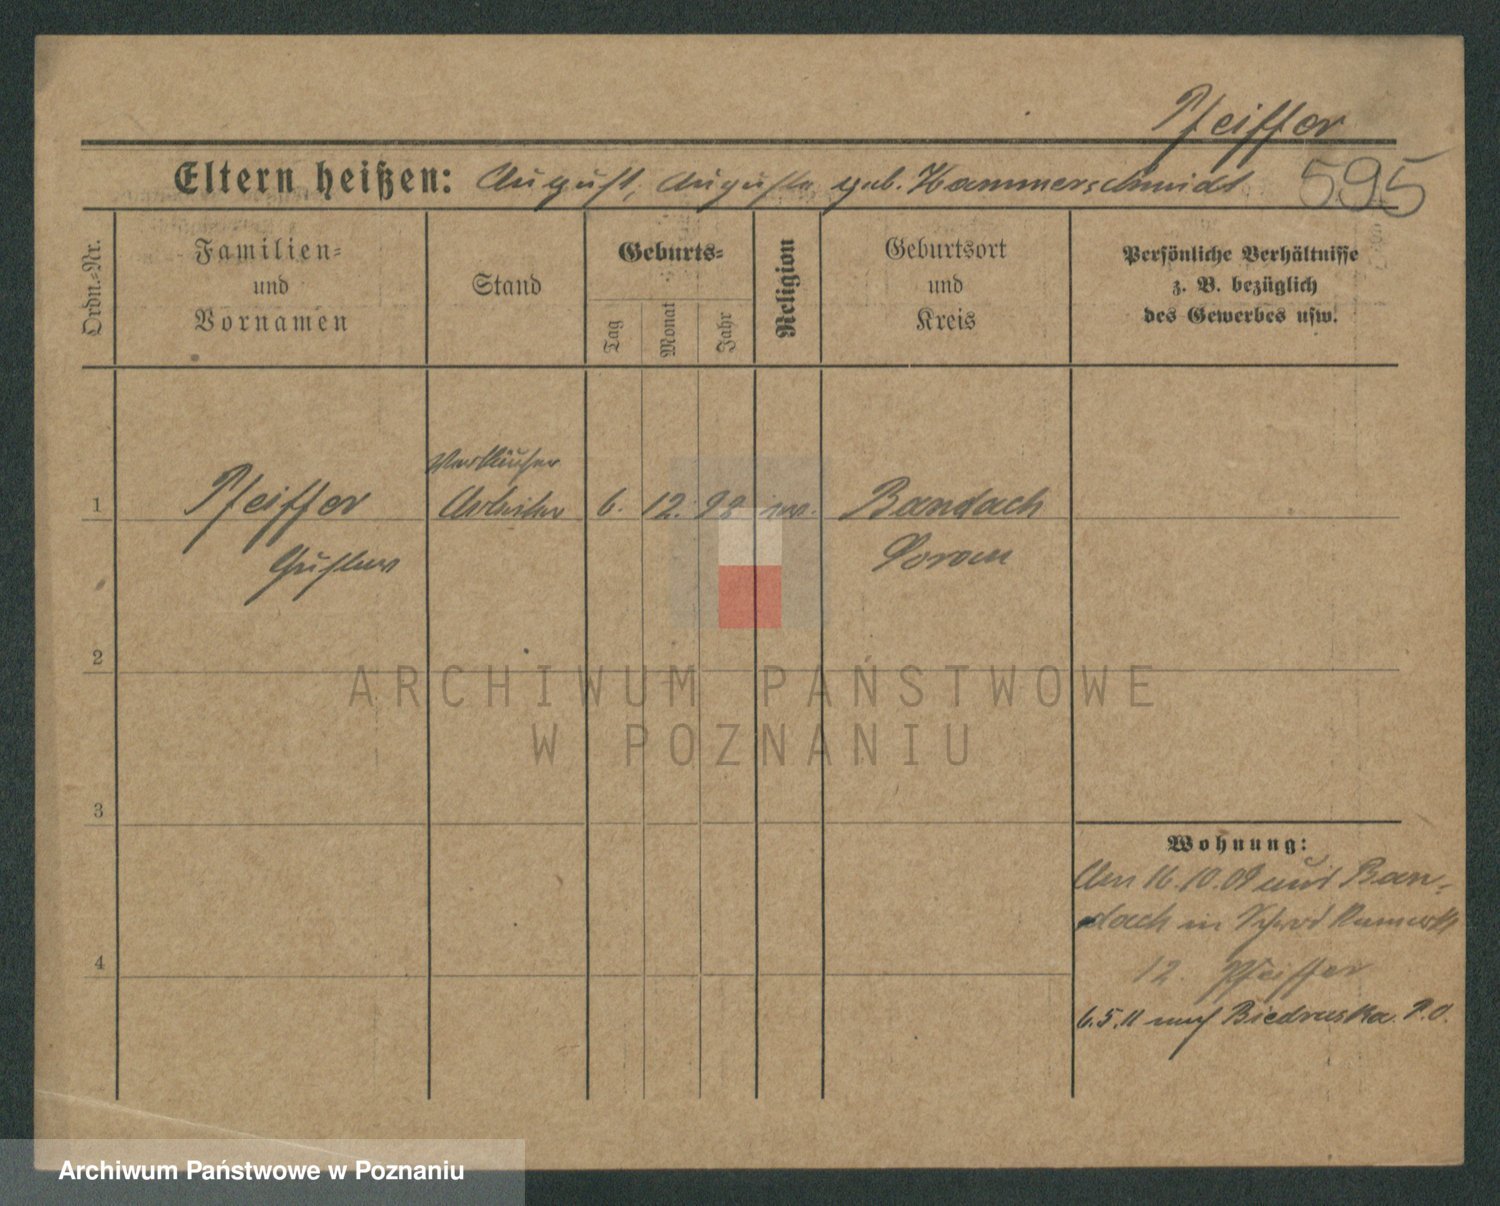 Pfeiffer
Eltern heißen: August, Auguste geb. Hammerschmidt 595
Ordn.-Nr.
Familien-
und
Vornamen
Stand
Geburts-
Tag
Monat
Jahr
Religion
Geburtsort
und
Kreis
Persönliche Verhältnisse
z. B. bezüglich
des Gewerbes usw.
Verkäufer
1 Pfeiffer Arbeiter 6. 12. ev. Bandach
Gustav Sorau
2
3
4
Wohnung:
Am 16.10.09 aus Ban-
dach in
12. Pfeiffer
6.5.11 nach Biedrusko. P.O.
ARCHIWUM PAŃSTWOWE
W POZNANIU
Archiwum Państwowe w Poznaniu